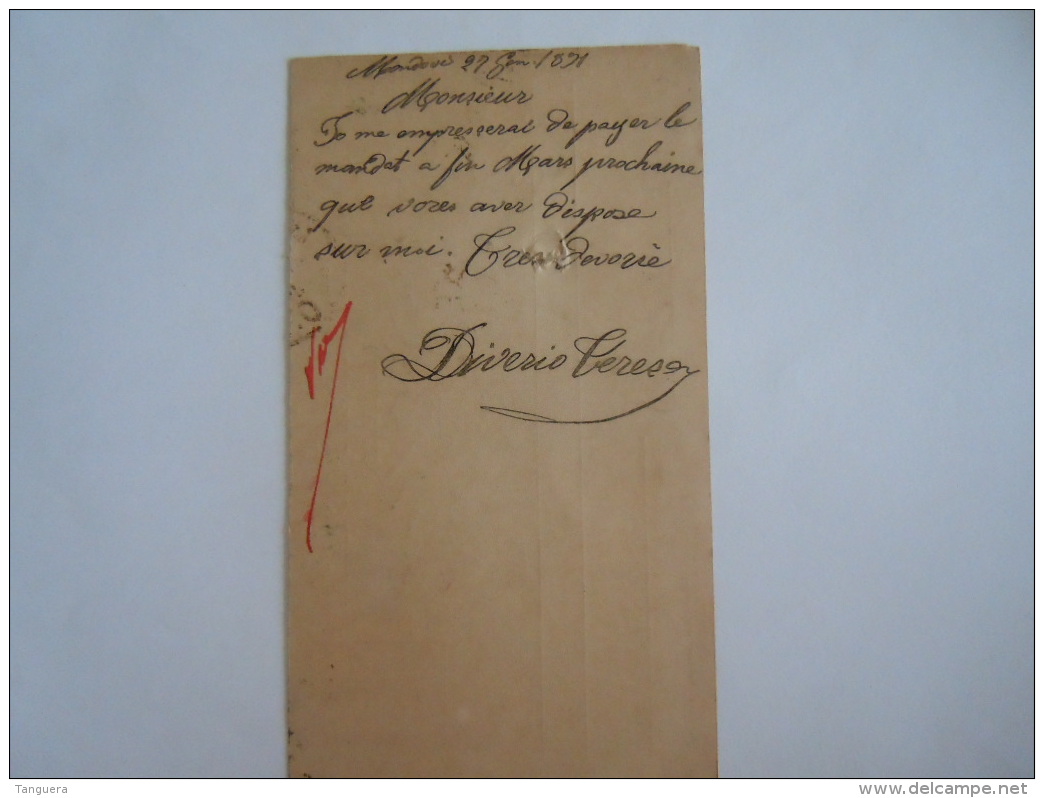 Mondovi 27 Gen. 1891
Monsieur
Io me empresserai de payer le
mandat a fin Mars prochaine
que vores aver dispose
sur moi. Tres devorie
Diverio Teresa
Tanguera
www.delcampe.net